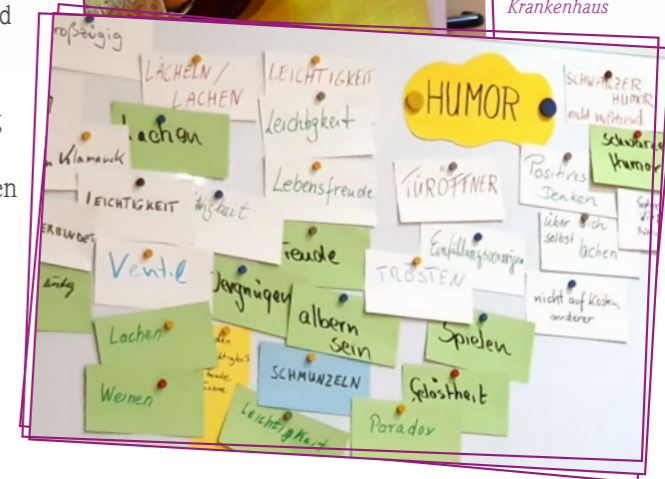 Krankenhaus
roßzügig
LÄCHELN /
LACHEN
LEICHTIGKEIT
HUMOR
SCHWARZER
HUMOR
nicht
Lachen
Leichtigkeit
schwarzer
Humor
Klamauck
Lebensfreude
TÜRÖFFNER
Positives
Denken
LEICHTIGKEIT
über sich
selbst lachen
ERBUNDEN
Freude
Einfühlungsvermögen
Ventil
TRÖSTEN
Vergnügen
nicht auf Kosten
anderer
albern
sein
Spielen
Lachen
SCHMUNZELN
Gelöstheit
Weinen
Leichtigkeit
Paradox